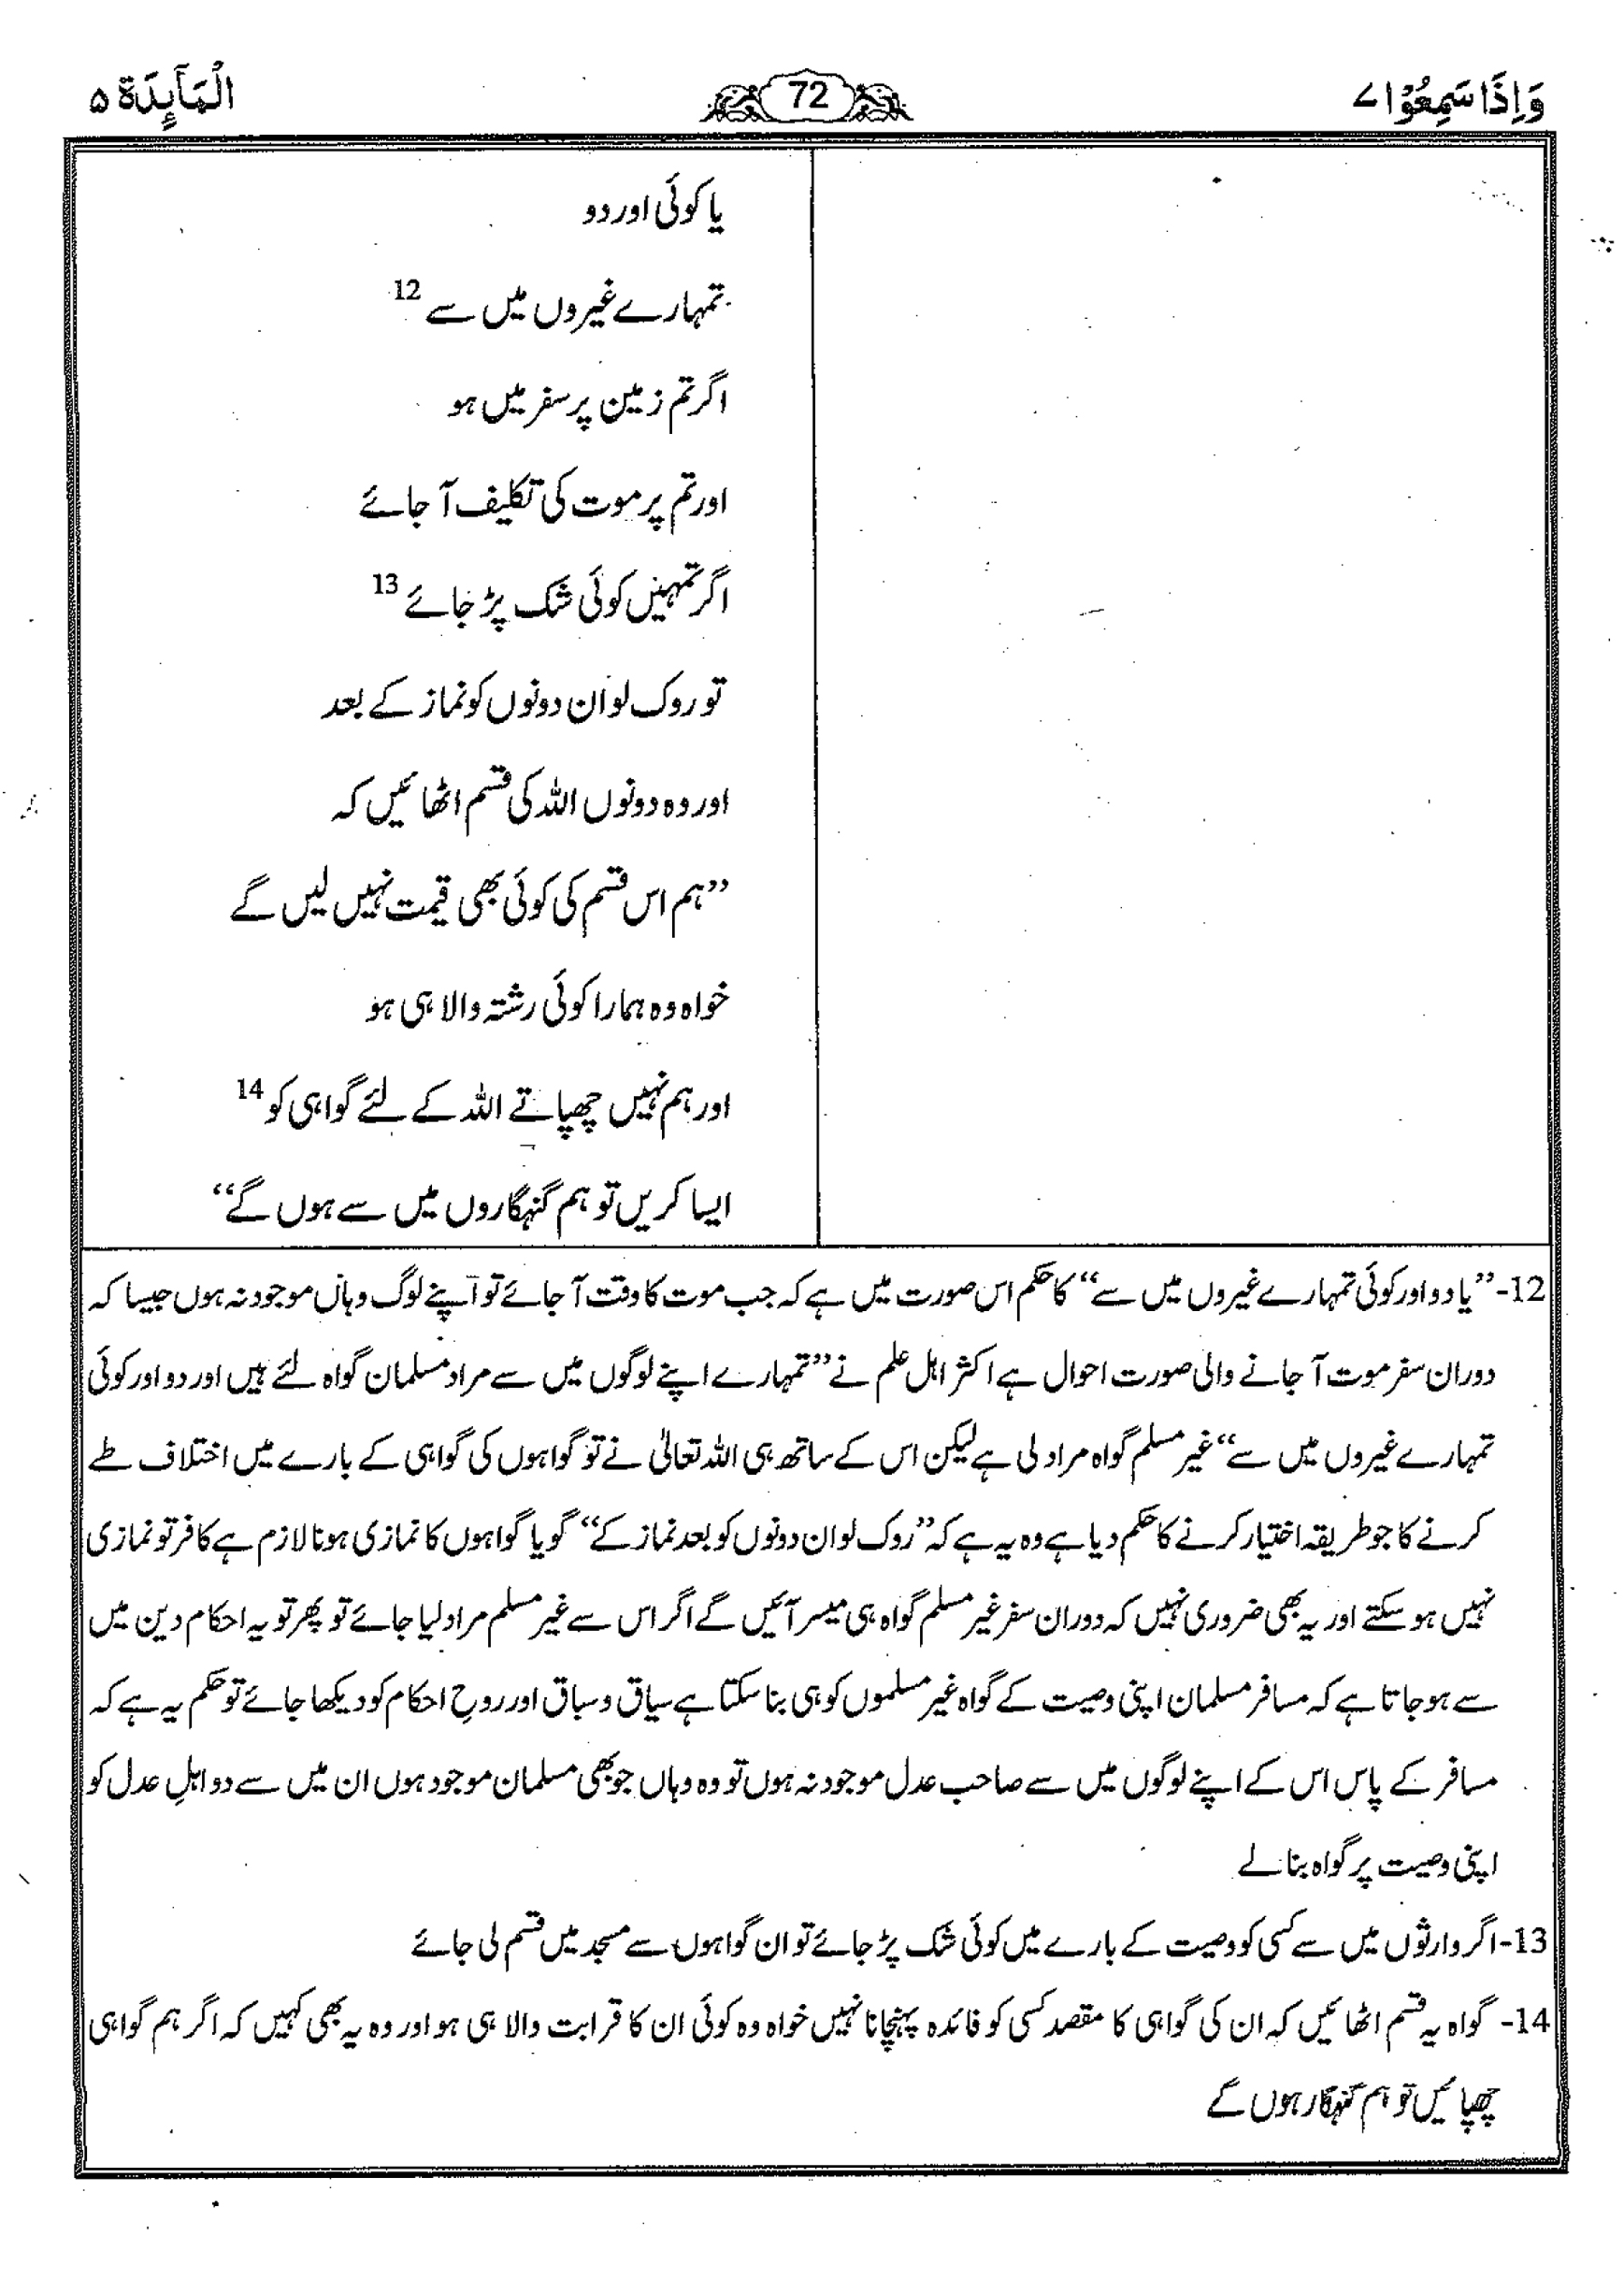 وَاِذَا سَمِعُوْا ۷
72
الْمَآئِدَة ۵
یا کوئی اور دو
تمہارے غیروں میں سے 12
اگر تم زمین پر سفر میں ہو
اور تم پر موت کی تکلیف آ جائے
اگر تمہیں کوئی شک پڑ جائے 13
تو روک لو ان دونوں کو نماز کے بعد
اور وہ دونوں اللہ کی قسم اٹھائیں کہ
”ہم اس قسم کی کوئی بھی قیمت نہیں لیں گے
خواہ وہ ہمارا کوئی رشتہ والا ہی ہو
اور ہم نہیں چھپاتے اللہ کے لئے گواہی کو 14
ایسا کریں تو ہم گنہگاروں میں سے ہوں گے“
12- ”یا دو اور کوئی تمہارے غیروں میں سے“ کا حکم اس صورت میں ہے کہ جب موت کا وقت آ جائے تو اپنے لوگ وہاں موجود نہ ہوں جیسا کہ
دوران سفر موت آ جانے والی صورت احوال ہے اکثر اہل علم نے ”تمہارے اپنے لوگوں میں سے مراد مسلمان گواہ لئے ہیں اور دو اور کوئی
تمہارے غیروں میں سے“ غیر مسلم گواہ مراد لی ہے لیکن اس کے ساتھ ہی اللہ تعالیٰ نے تو گواہوں کی گواہی کے بارے میں اختلاف طے
کرنے کا جو طریقہ اختیار کرنے کا حکم دیا ہے وہ یہ ہے کہ ”روک لو ان دونوں کو بعد نماز کے“ گویا گواہوں کا نمازی ہونا لازم ہے کافر تو نمازی
نہیں ہو سکتے اور یہ بھی ضروری نہیں کہ دوران سفر غیر مسلم گواہ ہی میسر آئیں گے اگر اس سے غیر مسلم مراد لیا جائے تو پھر تو یہ احکام دین میں
سے ہو جاتا ہے کہ مسافر مسلمان اپنی وصیت کے گواہ غیر مسلموں کو ہی بنا سکتا ہے سیاق و سباق اور روحِ احکام کو دیکھا جائے تو حکم یہ ہے کہ
مسافر کے پاس اس کے اپنے لوگوں میں سے صاحب عدل موجود نہ ہوں تو وہ وہاں جو بھی مسلمان موجود ہوں ان میں سے دو اہلِ عدل کو
اپنی وصیت پر گواہ بنا لے
13- اگر وارثوں میں سے کسی کو وصیت کے بارے میں کوئی شک پڑ جائے تو ان گواہوں سے مسجد میں قسم لی جائے
14- گواہ یہ قسم اٹھائیں کہ ان کی گواہی کا مقصد کسی کو فائدہ پہنچانا نہیں خواہ وہ کوئی ان کا قرابت والا ہی ہو اور وہ یہ بھی کہیں کہ اگر ہم گواہی
چھپائیں تو ہم گنہگار ہوں گے